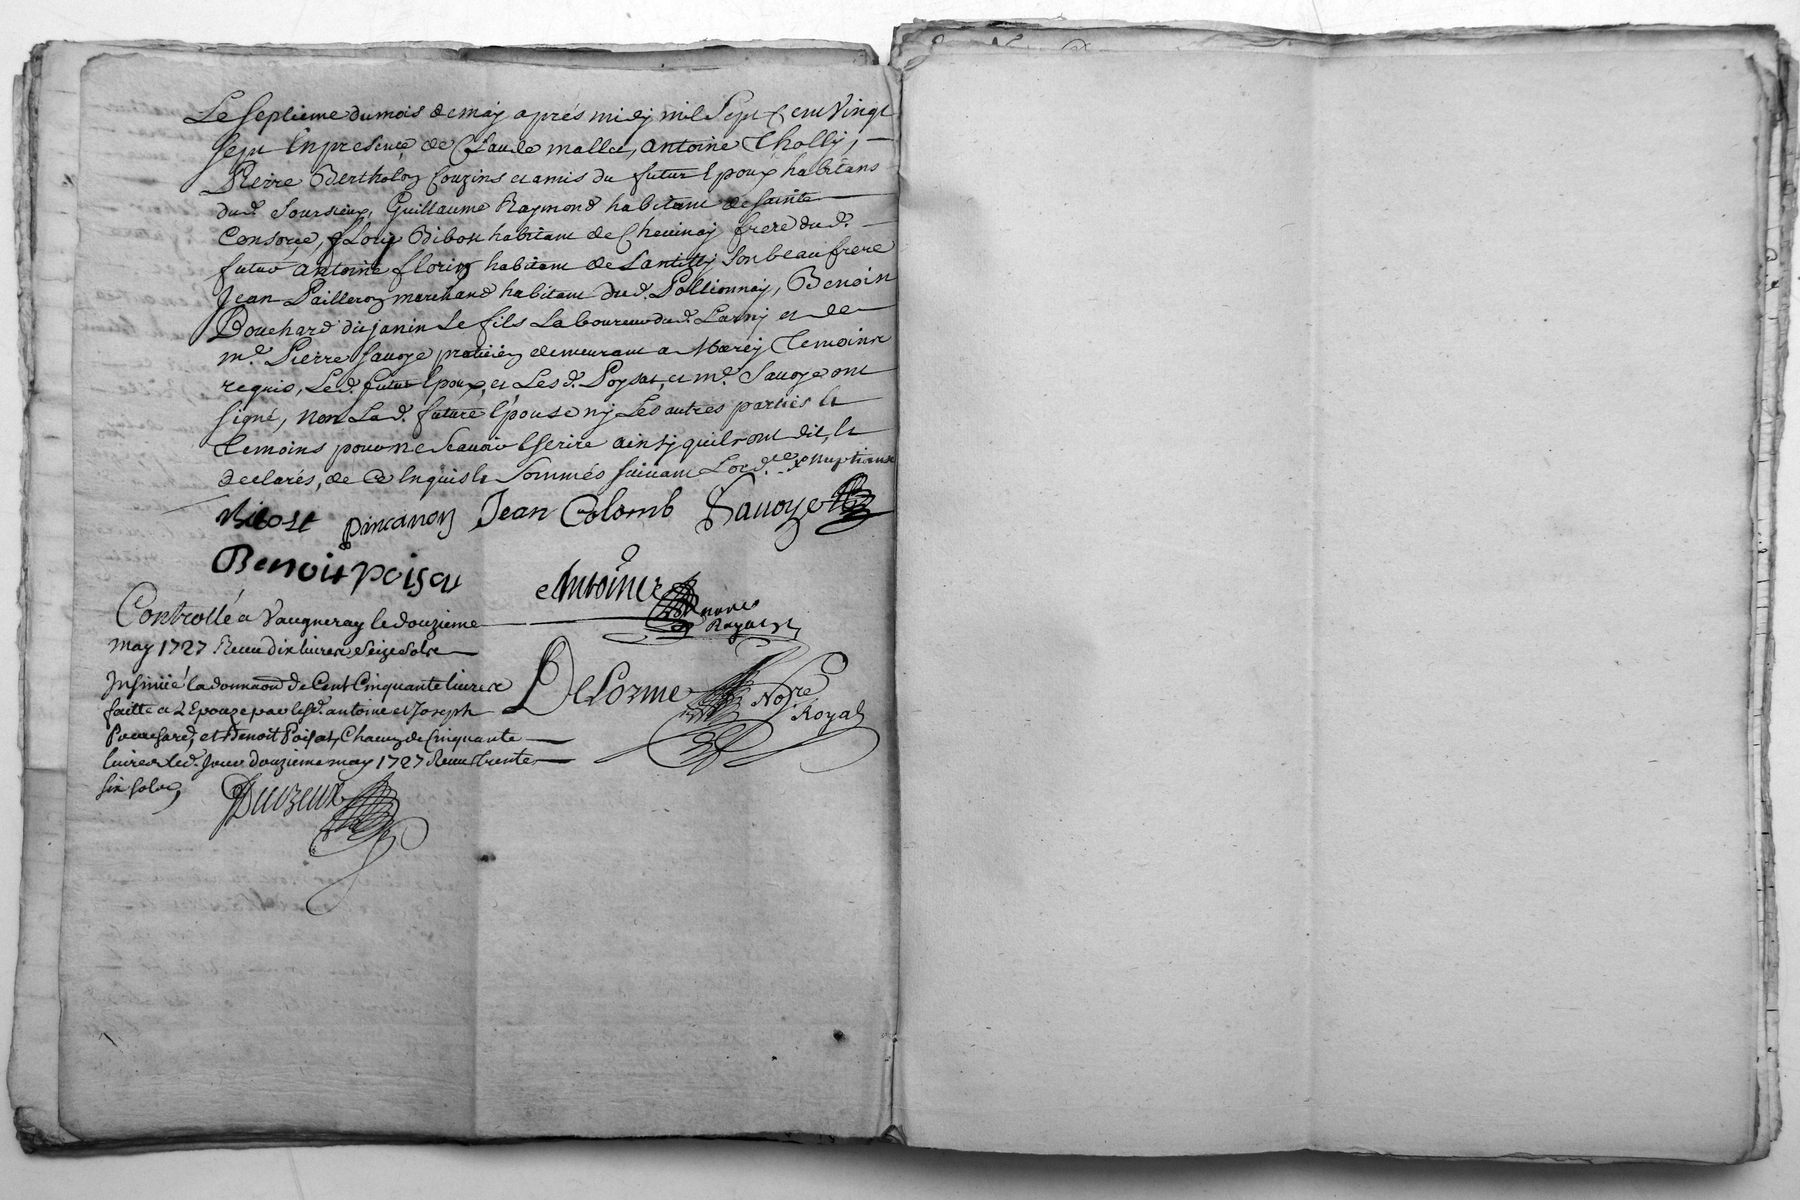 Le septieme du mois de may aprés midy mil sept Cent Vingt
sept En presence de Claude mallet, antoine Tholly,
Pierre Bertholon Couzins et amis du futur Epoux habitans
dud. Soursieux, Guillaume Raymond habitant de sainte
Consorce, fleury Bibost habitant de Chevinay frere dud.
futur antoine florin habitant de Lantilly son beau frere
Jean Pailleron marchand habitant dud. Pollionnay, Benoin
Bouchard dit janin Le fils Laboureur dud. Larny et de
m.e Pierre savoye praticien demeurant a Marcy Temoins
requis, Led. futur Epoux, et Lesd. Poysat, et m.e Savoye ont
signé, non Lad. future Epouse ny Les autres parties Et
Temoins pour ne scavoir Escrire ainsy quils ont dit, Et
declarés, de ce Enquis Et sommés suivant Lord.ce
Bibost pincanon Jean Colomb Savoye
Benoit poisat
Antoine
Royal
Controllé a Vaugneray le douzieme
may 1727 Receu dix livres seize sols
Delorme No.re
Royal
Insinüé la donnaon de Cent Cinquante livres
faitte a L Epouze par lesd. antoine et Joseph
et Benoit Poisat, Chacun de Cinquante
livres led. Jour douzieme may 1727 Receu trente
six sols,